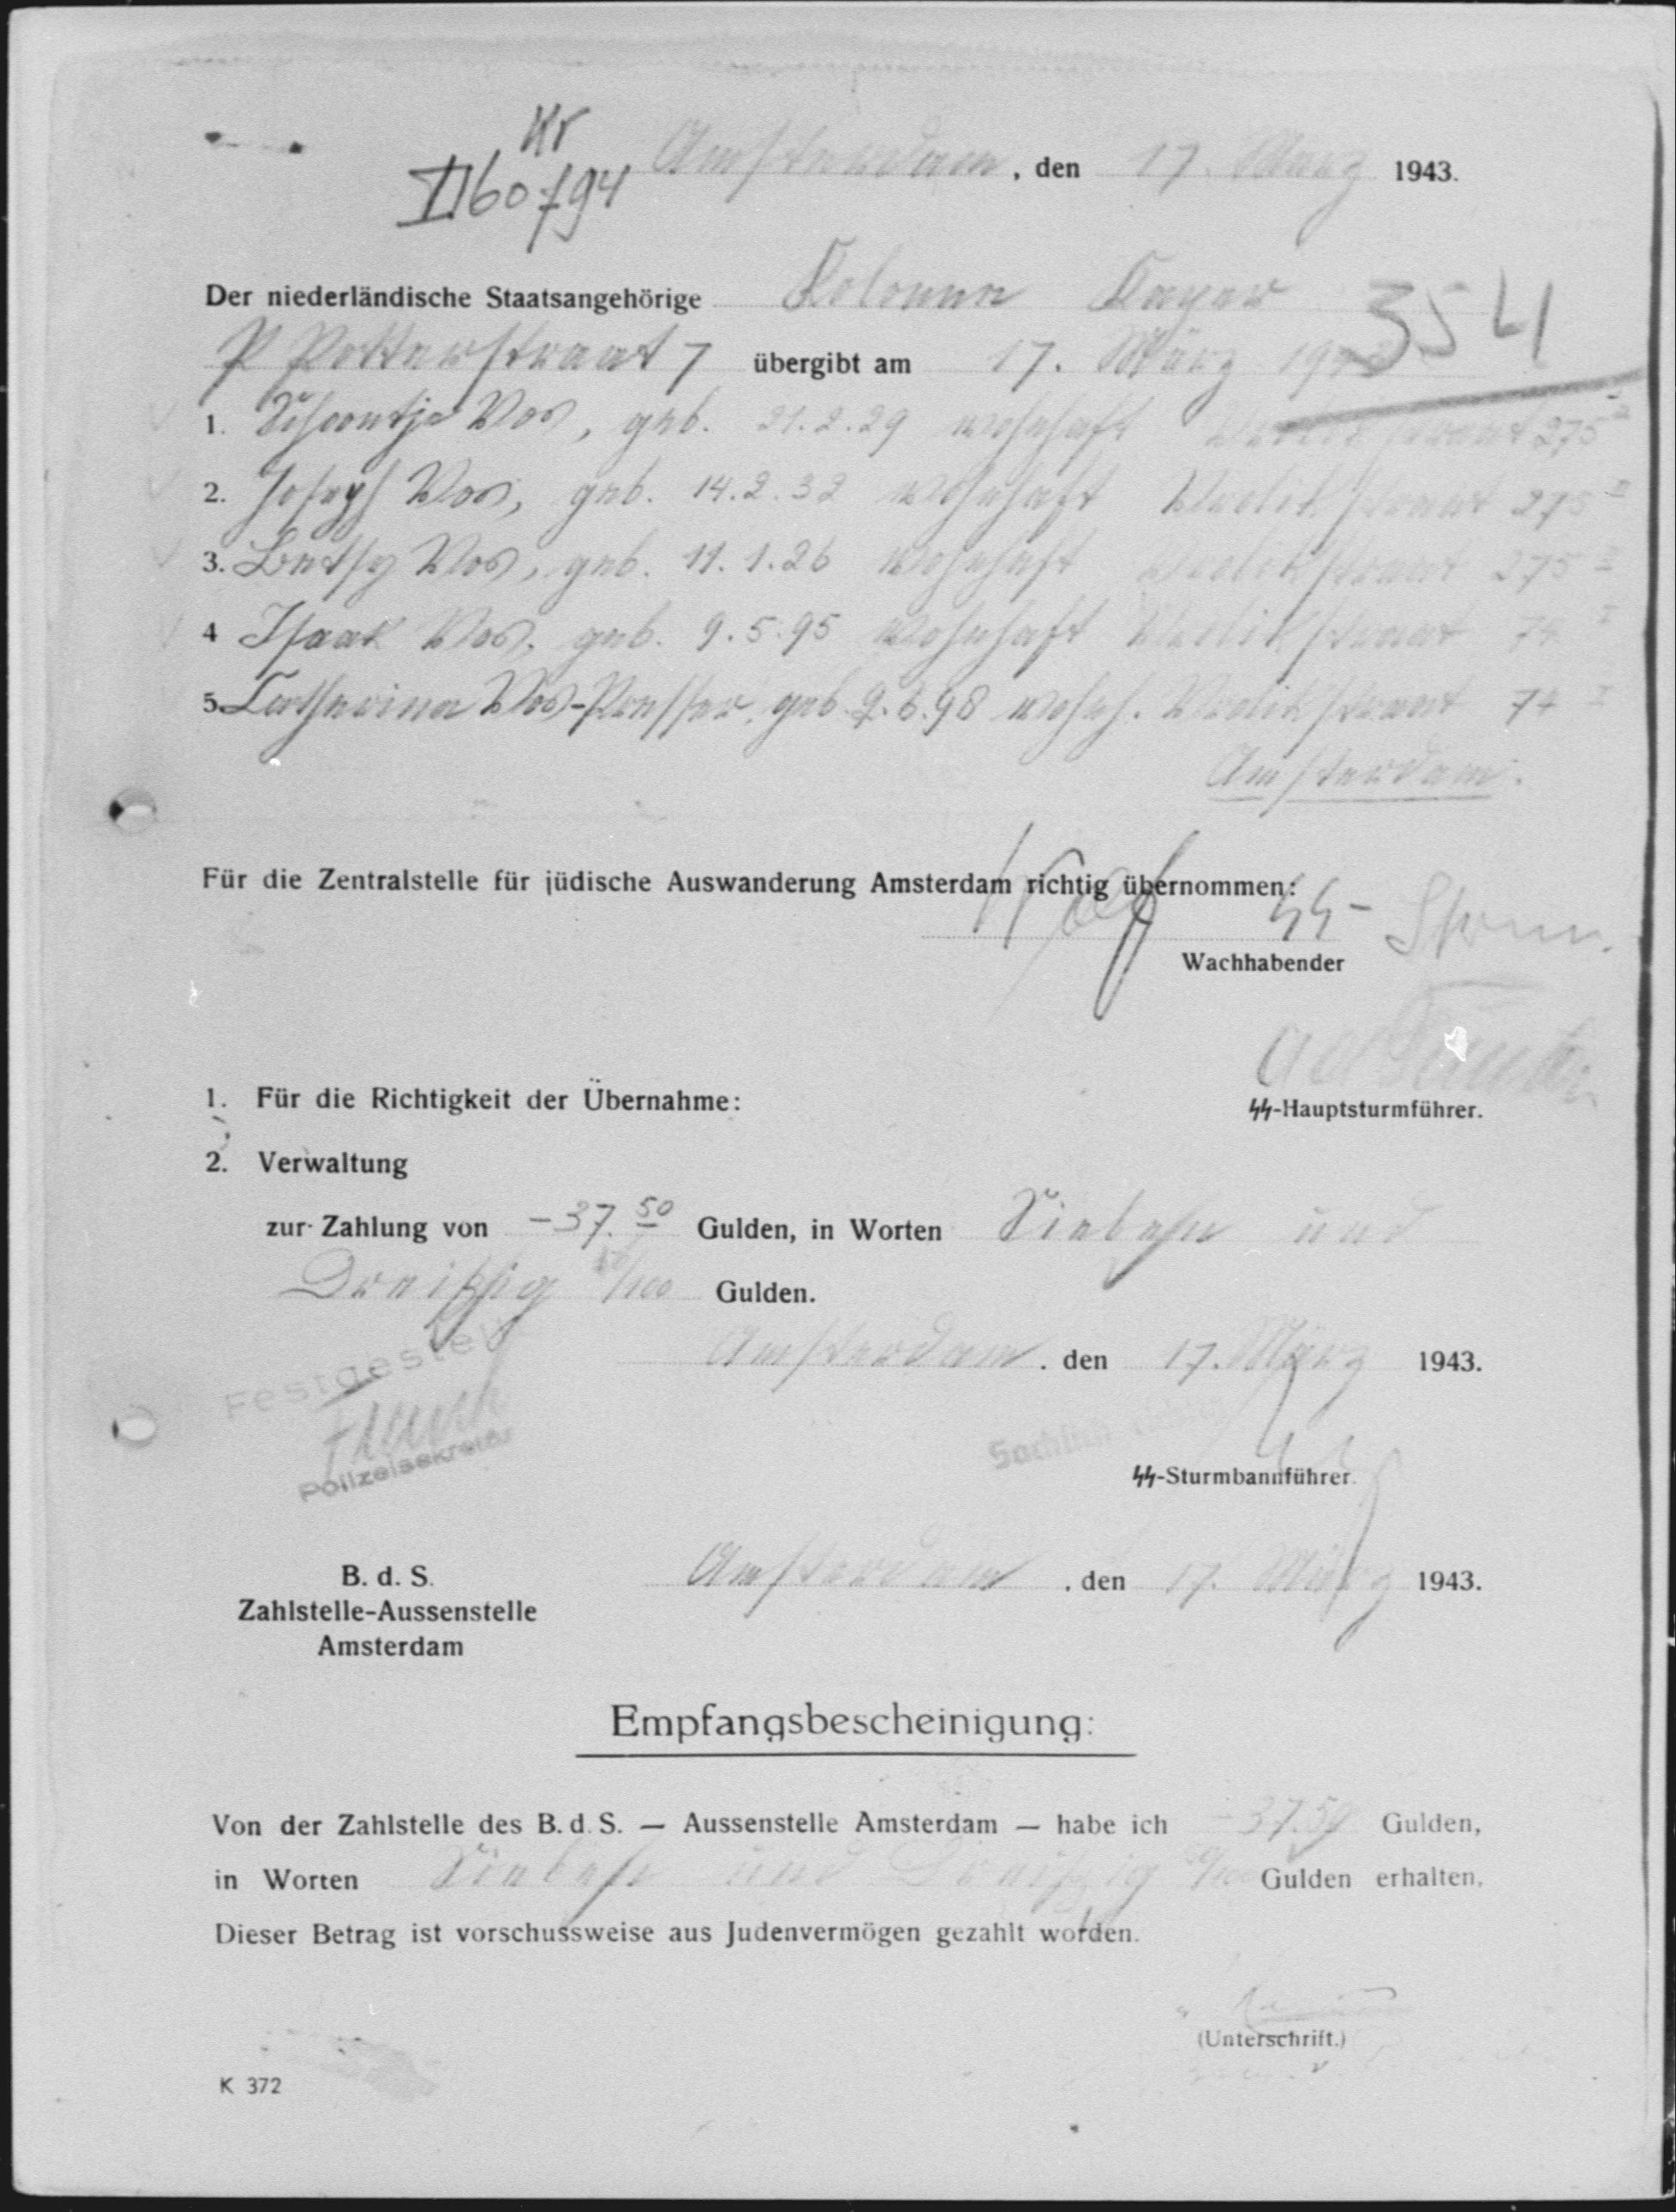 Kr
II 60794
Amsterdam, den 17. März 1943.
Der niederländische Staatsangehörige Kolonne Kayer
354
P Potterstraat 7 übergibt am 17. März 1943
1. Schoontje Vos, geb. 21.2.29 wohnhaft 275 II
2. Joseph Vos, geb. 14.2.32 wohnhaft 275 II
3. Betsy Vos, geb. 11.1.26 wohnhaft 275 II
4 Isaak Vos, geb. 9.5.95 wohnhaft 74 I
5. Catharina Vos- geb. 9.6.98 wohnh. 74 I
Amsterdam.
Für die Zentralstelle für jüdische Auswanderung Amsterdam richtig übernommen:
SS-Strm.
Wachhabender
1. Für die Richtigkeit der Übernahme:
SS-Hauptsturmführer.
2. Verwaltung
zur Zahlung von -37.50 Gulden, in Worten Siebehn und
Dreißig 50/100 Gulden.
Festgestellt
Amsterdam. den 17. März 1943.
Polizeisekretär
Sachlich richtig
SS-Sturmbannführer.
B. d. S.
Zahlstelle-Aussenstelle
Amsterdam
Amsterdam, den 17. März 1943.
Empfangsbescheinigung:
Von der Zahlstelle des B. d. S. — Aussenstelle Amsterdam — habe ich -37.50 Gulden,
in Worten Siebehn und Dreißig 50/100 Gulden erhalten.
Dieser Betrag ist vorschussweise aus Judenvermögen gezahlt worden.
(Unterschrift.)
K 372